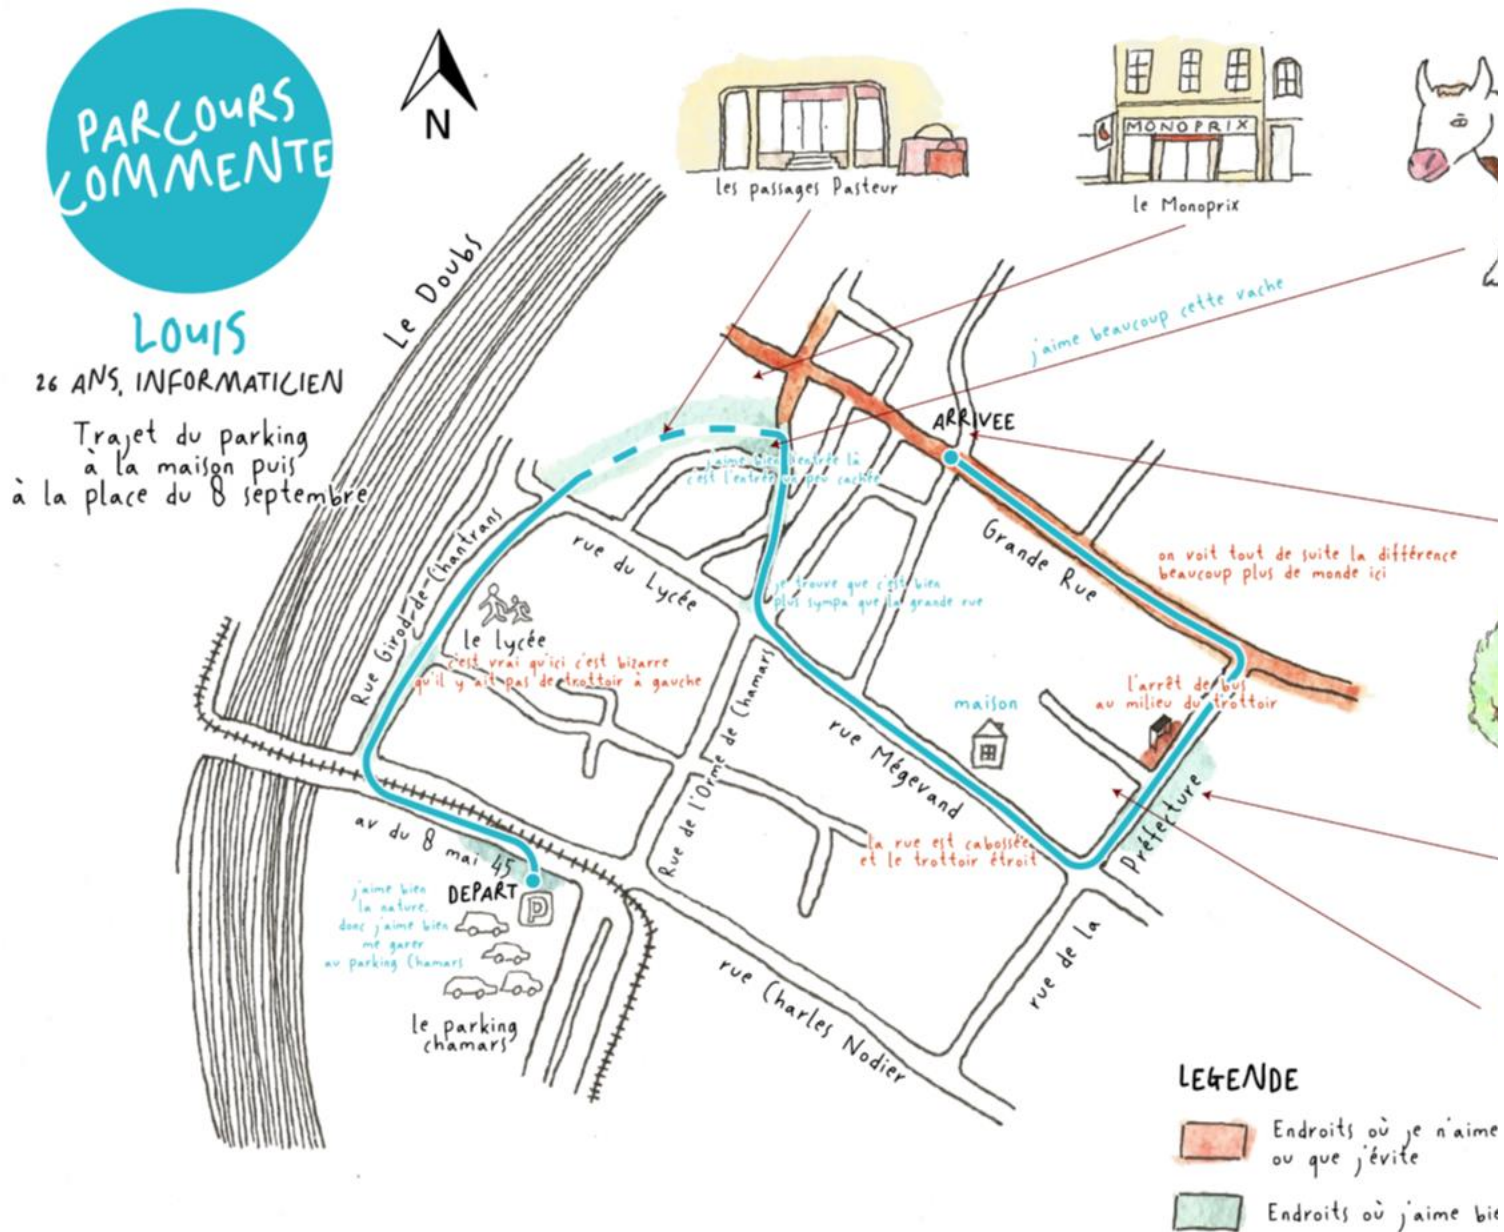 PARCOURS
COMMENTE
N
LOUIS
26 ANS, INFORMATICIEN
Trajet du parking
à la maison puis
à la place du 8 septembre
les passages Pasteur
MONOPRIX
le Monoprix
Le Doubs
j'aime beaucoup cette vache
ARRIVEE
j'aime bien l'entrée là
c'est l'entrée un peu cachée
Grande Rue
on voit tout de suite la différence
beaucoup plus de monde ici
Rue Girod-de-Chantrans
rue du Lycée
je trouve que c'est bien
plus sympa que la grande rue
le lycée
c'est vrai qu'ici c'est bizarre
qu'il y ait pas de trottoir à gauche
Rue de l'Orme de Chamars
maison
l'arrêt de bus
au milieu du trottoir
rue Mégevand
la rue est cabossée
et le trottoir étroit
rue de la Préfecture
av du 8 mai 45
DEPART
P
j'aime bien
la nature,
donc j'aime bien
me garer
au parking Chamars
le parking
chamars
rue Charles Nodier
LEGENDE
Endroits où je n'aime
ou que j'évite
Endroits où j'aime bie